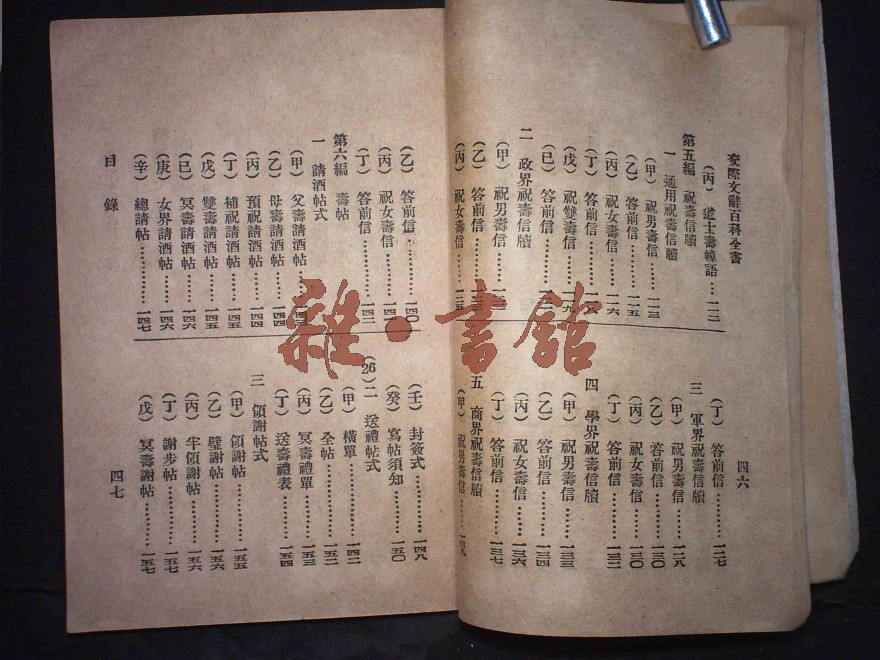 交際文辭百科全書
(丙) 道士壽幛語…一一二
第五編 祝壽信牘
一 通用祝壽信牘
(甲) 祝男壽信……一一三
(乙) 答前信………一一五
(丙) 祝女壽信……一一六
(丁) 答前信
(戊) 祝雙壽信
(已) 答前信
二 政界祝壽信牘
(甲) 祝男壽信
(乙) 答前信
(丙) 祝女壽信……一三五
四六
(丁) 答前信………一二七
三 軍界祝壽信牘
(甲) 祝男壽信……一二八
(乙) 答前信………一三〇
(丙) 祝女壽信……一三〇
(丁) 答前信………一三二
四 學界祝壽信牘
(甲) 祝男壽信……一三三
(乙) 答前信………一三四
(丙) 祝女壽信……一三六
(丁) 答前信………一三七
五 商界祝壽信牘
(甲) 祝男壽信……一三八
(乙) 答前信………一四〇
(丙) 祝女壽信……一四一
(丁) 答前信………一四二
第六編 壽帖
一 請酒帖式
(甲) 父壽請酒帖
(乙) 母壽請酒帖……一四四
(丙) 預祝請酒帖……一四四
(丁) 補祝請酒帖……一四五
(戊) 雙壽請酒帖……一四五
(已) 冥壽請酒帖……一四六
(庚) 女界請酒帖……一四六
(辛) 總請帖…………一四七
目錄
(壬) 封簽式…………一四八
(癸) 寫帖須知………一五〇
(26)
二 送禮帖式
(甲) 橫單……………一四二
(乙) 全帖……………一五二
(丙) 冥壽禮單………一五三
(丁) 送壽禮表………一五四
三 領謝帖式
(甲) 領謝帖…………一五五
(乙) 璧謝帖…………一五六
(丙) 半領謝帖………一五六
(丁) 謝步帖…………一五七
(戊) 冥壽謝帖………一五七
四七
雜·書館